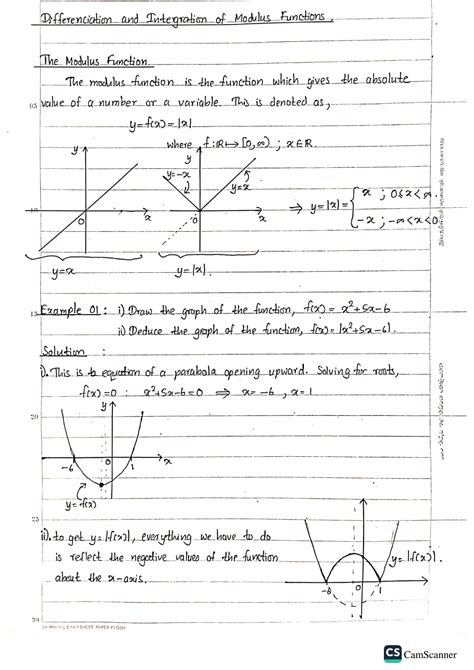 Differenciation and Integration of Modulus Functions.
The Modulus Function.
The modulus function is the function which gives the absolute
05
value of a number or a variable. This is denoted as,
y=f(x)=|x|
where f:ℝ↦[0,∞) ; x∈ℝ.
y
y
y=-x
y=x
0
x
0
x
⇒ y=|x|= { x ; 0≤x<∞.
-x ; -∞<x<0.
10
y=x
y=|x|.
Example 01: i) Draw the graph of the function, f(x) = x²+5x-6
15
ii) Deduce the graph of the function, f(x)=|x²+5x-6|.
Solution :
i). This is a equation of a parabola opening upward. Solving for roots,
f(x)=0 : x²+5x-6=0 ⇒ x=-6 , x=1
20
y
-6
0
1
x
y=f(x)
25
ii). to get y=|f(x)|, everything we have to do
is reflect the negative values of the function
y=|f(x)|.
about the x-axis.
-6
0
1
30
CS CamScanner